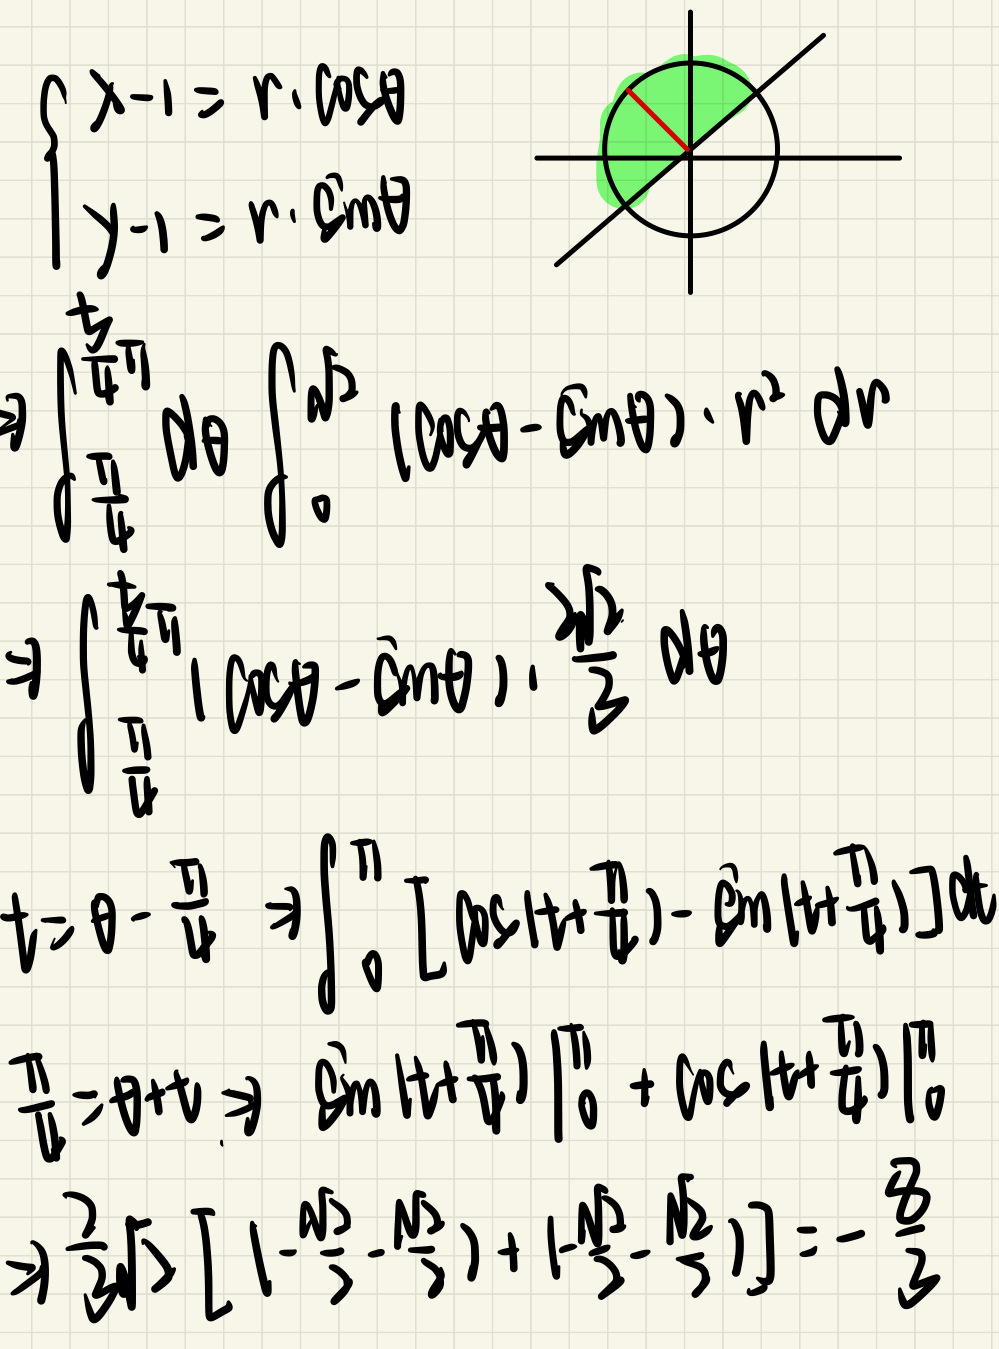 x-1 = r·cosθ
y-1 = r·sinθ
⇒ ∫_{π/4}^{5/4 π} dθ ∫_0^{√2} (cosθ - sinθ)·r² dr
⇒ ∫_{π/4}^{5/4 π} (cosθ - sinθ)·2√2/3 dθ
t = θ - π/4 ⇒ ∫_0^π [cos(t+π/4) - sin(t+π/4)] dt
π/4 = θ+t ⇒ sin(t+π/4)|_0^π + cos(t+π/4)|_0^π
⇒ 2/3 √2 [(-√2/2 - √2/2) + (-√2/2 - √2/2)] = -8/3